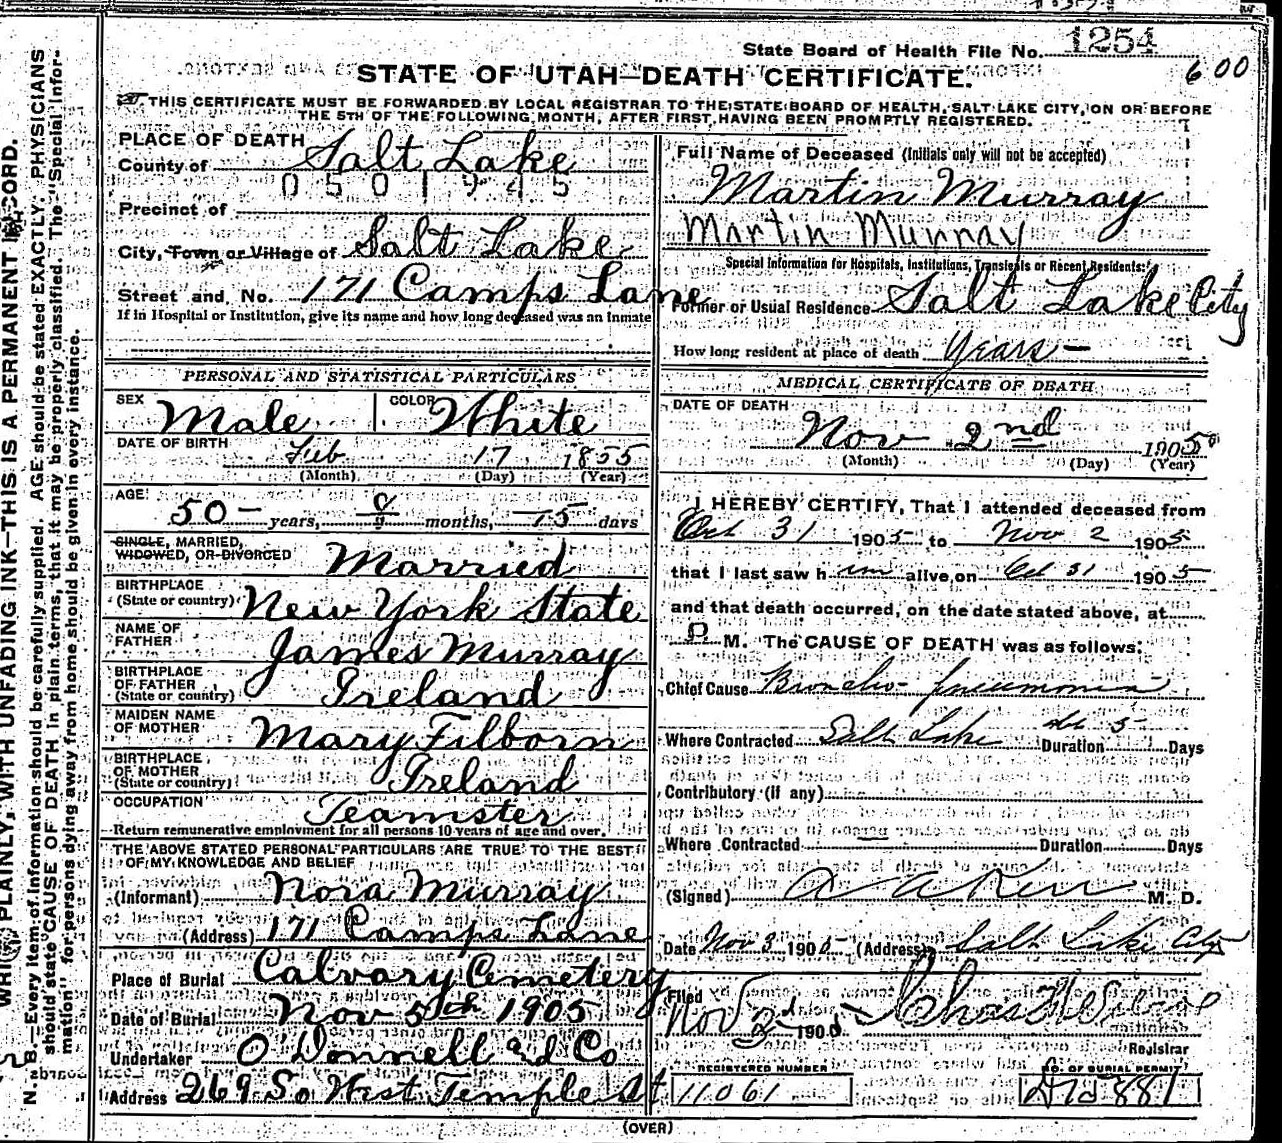 State Board of Health File No. 1254
6 00
STATE OF UTAH—DEATH CERTIFICATE.
THIS CERTIFICATE MUST BE FORWARDED BY LOCAL REGISTRAR TO THE STATE BOARD OF HEALTH, SALT LAKE CITY, ON OR BEFORE
THE 5TH OF THE FOLLOWING MONTH, AFTER FIRST HAVING BEEN PROMPTLY REGISTERED.
PLACE OF DEATH
County of Salt Lake
0501945
Precinct of
City, Town or Village of Salt Lake
Street and No. 171 Camps Lane
If in Hospital or Institution, give its name and how long deceased was an inmate
PERSONAL AND STATISTICAL PARTICULARS
SEX Male COLOR White
DATE OF BIRTH
Feb 17 1855
(Month) (Day) (Year)
AGE
50 — years, 8 months, 15 days
SINGLE, MARRIED,
WIDOWED, OR DIVORCED Married
BIRTHPLACE
(State or country) New York State
NAME OF
FATHER James Murray
BIRTHPLACE
OF FATHER
(State or country) Ireland
MAIDEN NAME
OF MOTHER Mary Filborn
BIRTHPLACE
OF MOTHER
(State or country) Ireland
OCCUPATION Teamster
Return remunerative employment for all persons 10 years of age and over.
THE ABOVE STATED PERSONAL PARTICULARS ARE TRUE TO THE BEST
OF MY KNOWLEDGE AND BELIEF
(Informant) Nora Murray
(Address) 171 Camps Lane
Place of Burial Calvary Cemetery
Date of Burial Nov 5th 1905
Undertaker O'Donnell and Co
Address 269 So West Temple St
Full Name of Deceased (Initials only will not be accepted)
Martin Murray
Martin Murray
Special Information for Hospitals, Institutions, Transients or Recent Residents:
Former or Usual Residence Salt Lake City
How long resident at place of death Years —
MEDICAL CERTIFICATE OF DEATH
DATE OF DEATH
Nov 2nd 1905
(Month) (Day) (Year)
I HEREBY CERTIFY, That I attended deceased from
Oct 31 1905 to Nov 2 1905
that I last saw him alive on Oct 31 1905
and that death occurred, on the date stated above, at
P M. The CAUSE OF DEATH was as follows:
Chief Cause Broncho-pneumonia
Where Contracted Salt Lake Duration 5 Days
Contributory (if any)
Where Contracted — Duration Days
(Signed) A A Kerr M. D.
Date Nov 3 1905 (Address) Salt Lake City
Filed
Nov 1905
Registrar
REGISTERED NUMBER
11061
NO. OF BURIAL PERMIT
881
(OVER)
WRITE PLAINLY, WITH UNFADING INK—THIS IS A PERMANENT RECORD.
N. B.—Every item of information should be carefully supplied. AGE should be stated EXACTLY. PHYSICIANS
should state CAUSE OF DEATH in plain terms, that it may be properly classified. The "Special Infor-
mation" for persons dying away from home should be given in every instance.